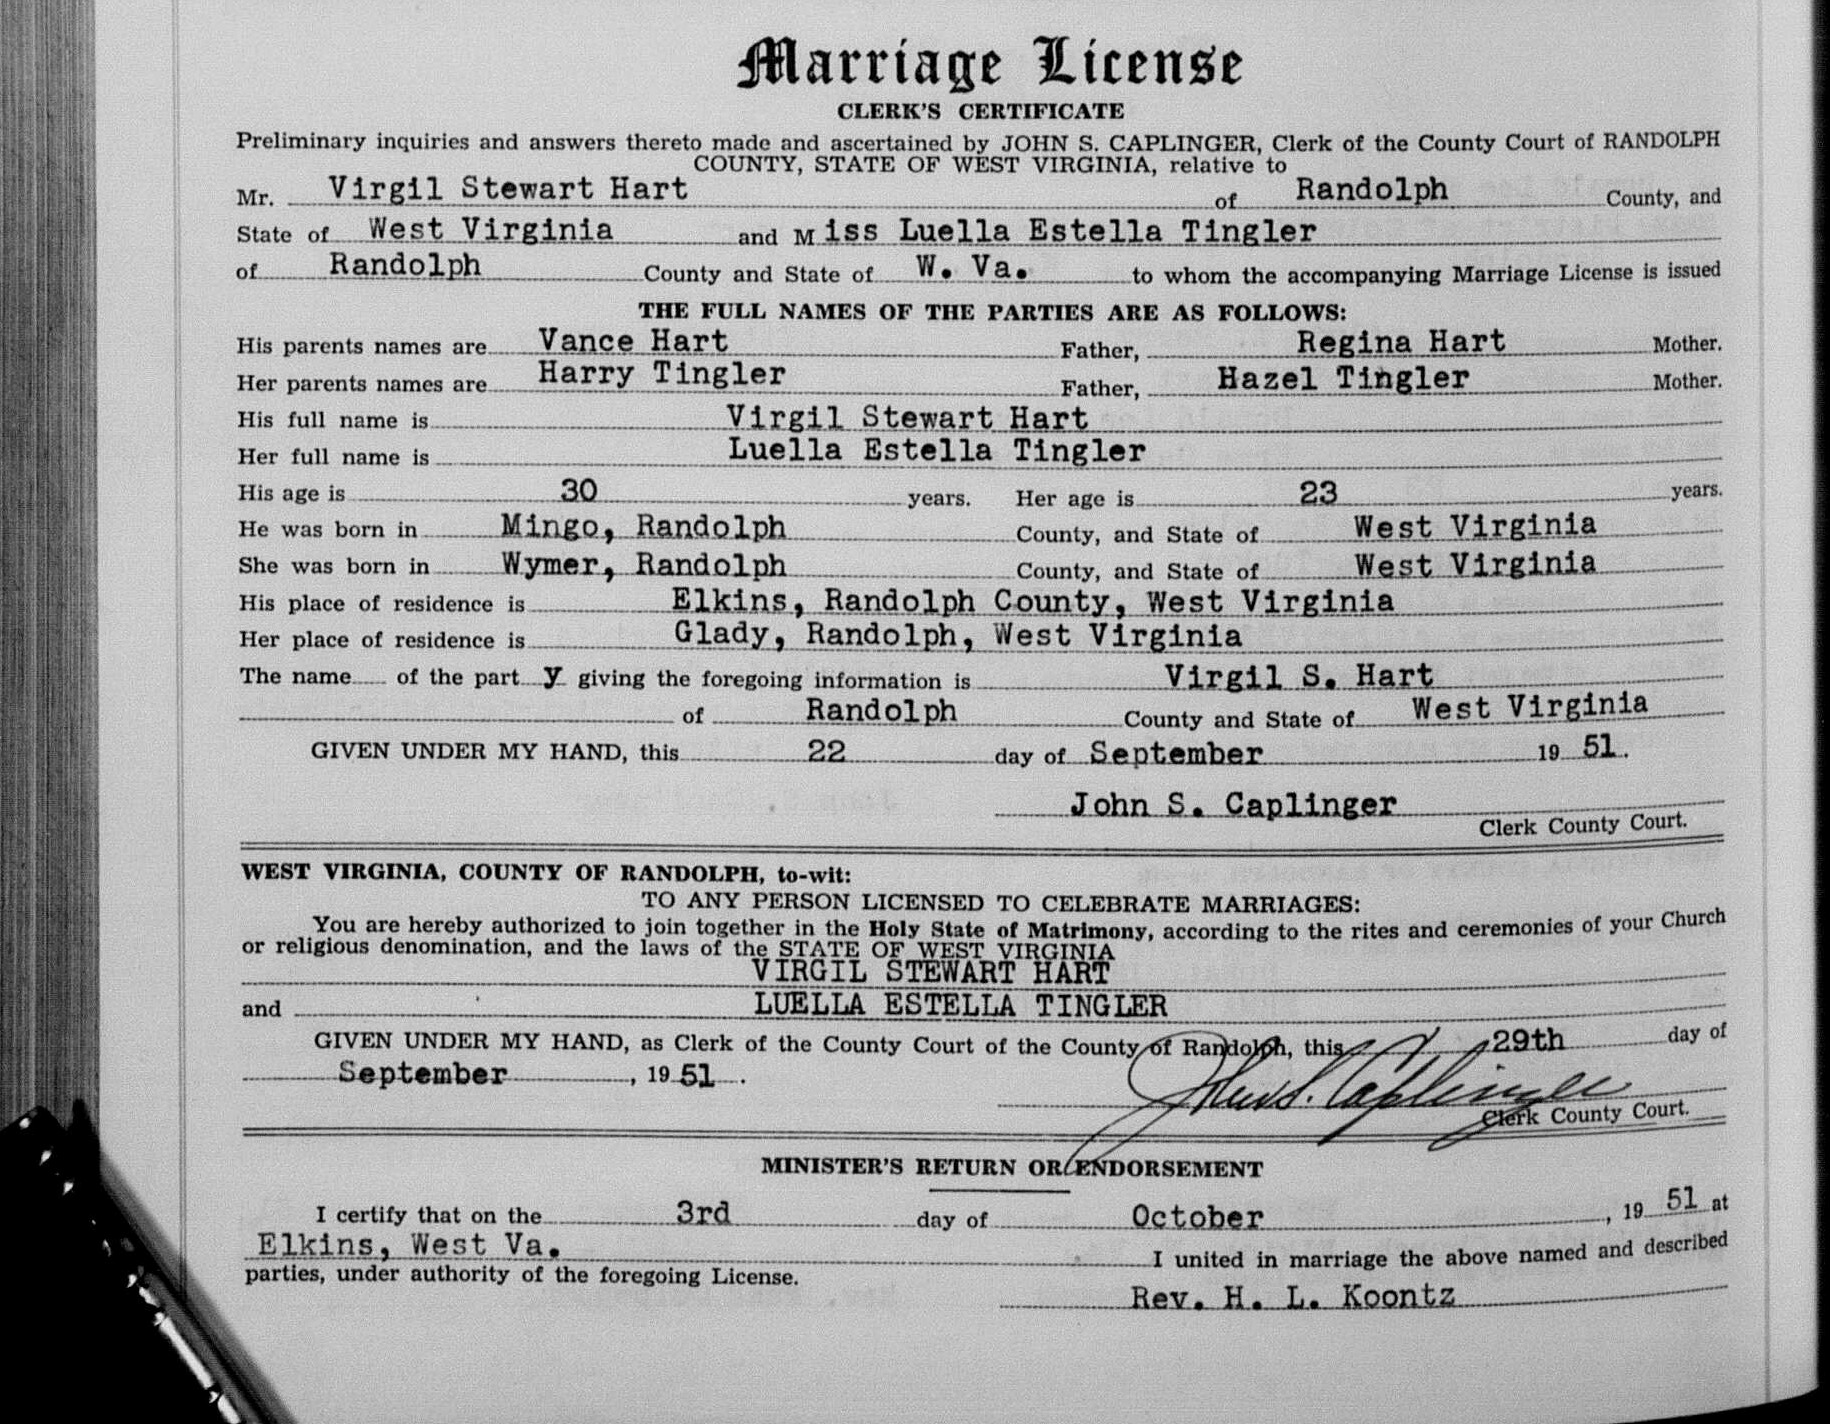 Marriage License
CLERK'S CERTIFICATE
Preliminary inquiries and answers thereto made and ascertained by JOHN S. CAPLINGER, Clerk of the County Court of RANDOLPH
COUNTY, STATE OF WEST VIRGINIA, relative to
Mr. Virgil Stewart Hart of Randolph County, and
State of West Virginia and Miss Luella Estella Tingler
of Randolph County and State of W. Va. to whom the accompanying Marriage License is issued
THE FULL NAMES OF THE PARTIES ARE AS FOLLOWS:
His parents names are Vance Hart Father, Regina Hart Mother.
Her parents names are Harry Tingler Father, Hazel Tingler Mother.
His full name is Virgil Stewart Hart
Her full name is Luella Estella Tingler
His age is 30 years. Her age is 23 years.
He was born in Mingo, Randolph County, and State of West Virginia
She was born in Wymer, Randolph County, and State of West Virginia
His place of residence is Elkins, Randolph County, West Virginia
Her place of residence is Glady, Randolph, West Virginia
The name of the part y giving the foregoing information is Virgil S. Hart
of Randolph County and State of West Virginia
GIVEN UNDER MY HAND, this 22 day of September 19 51.
John S. Caplinger
Clerk County Court.
WEST VIRGINIA, COUNTY OF RANDOLPH, to-wit:
TO ANY PERSON LICENSED TO CELEBRATE MARRIAGES:
You are hereby authorized to join together in the Holy State of Matrimony, according to the rites and ceremonies of your Church
or religious denomination, and the laws of the STATE OF WEST VIRGINIA
VIRGIL STEWART HART
and LUELLA ESTELLA TINGLER
GIVEN UNDER MY HAND, as Clerk of the County Court of the County of Randolph, this 29th day of
September, 19 51.
John S. Caplinger
Clerk County Court.
MINISTER'S RETURN OR ENDORSEMENT
I certify that on the 3rd day of October, 19 51 at
Elkins, West Va. I united in marriage the above named and described
parties, under authority of the foregoing License.
Rev. H. L. Koontz